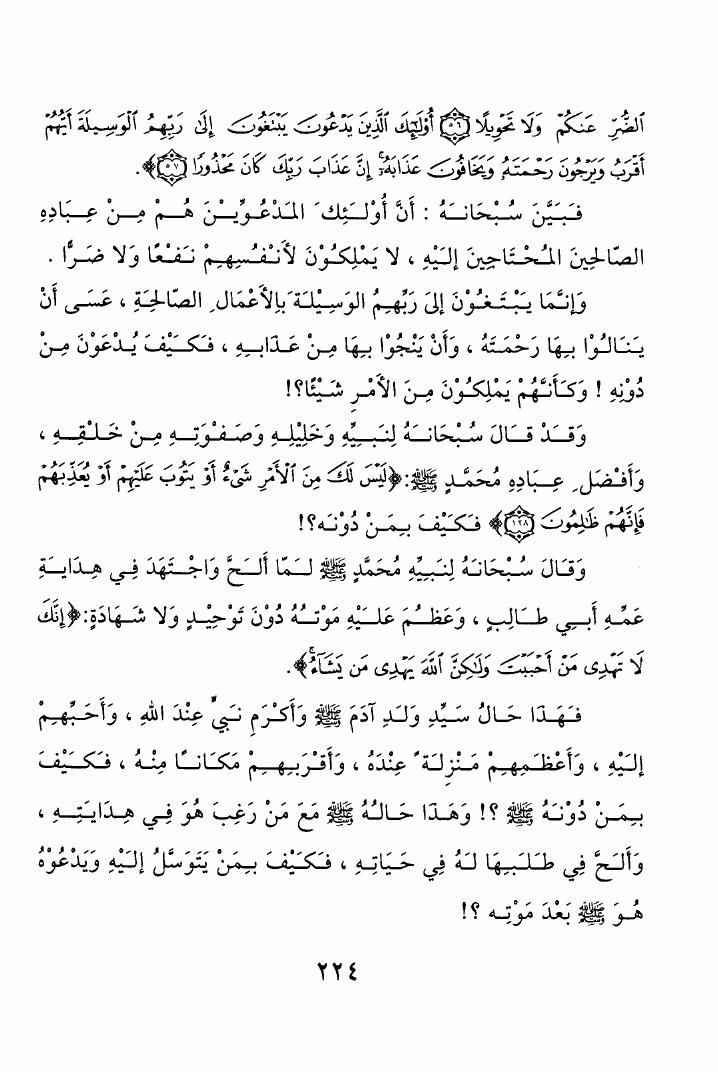 ٱلضُّرِّ عَنكُمْ وَلَا تَحْوِيلًا ﴿٥٦﴾ أُوْلَٰٓئِكَ ٱلَّذِينَ يَدْعُونَ يَبْتَغُونَ إِلَىٰ رَبِّهِمُ ٱلْوَسِيلَةَ أَيُّهُمْ
أَقْرَبُ وَيَرْجُونَ رَحْمَتَهُۥ وَيَخَافُونَ عَذَابَهُۥٓ ۚ إِنَّ عَذَابَ رَبِّكَ كَانَ مَحْذُورًا ﴿٥٧﴾﴾.
فَبَيَّنَ سُبْحَانَهُ : أَنَّ أُوْلَئِكَ المَدْعُوِّيْنَ هُمْ مِنْ عِبَادِهِ
الصَّالِحِينَ المُحْتَاجِينَ إِلَيْهِ ، لا يَمْلِكُوْنَ لأَنْفُسِهِمْ نَفْعًا وَلا ضَرًّا .
وَإِنَّمَا يَبْتَغُوْنَ إِلَى رَبِّهِمُ الوَسِيْلَةَ بِالأَعْمَالِ الصَّالِحَةِ ، عَسَى أَنْ
يَنَالُوْا بِهَا رَحْمَتَهُ ، وَأَنْ يَنْجُوْا بِهَا مِنْ عَذَابِهِ ، فَكَيْفَ يُدْعَوْنَ مِنْ
دُوْنِهِ ! وَكَأَنَّهُمْ يَمْلِكُوْنَ مِنَ الأَمْرِ شَيْئًا؟!
وَقَدْ قَالَ سُبْحَانَهُ لِنَبِيِّهِ وَخَلِيْلِهِ وَصَفْوَتِهِ مِنْ خَلْقِهِ ،
وَأَفْضَلِ عِبَادِهِ مُحَمَّدٍ ﷺ:﴿لَيْسَ لَكَ مِنَ ٱلْأَمْرِ شَىْءٌ أَوْ يَتُوبَ عَلَيْهِمْ أَوْ يُعَذِّبَهُمْ
فَإِنَّهُمْ ظَٰلِمُونَ ﴿١٢٨﴾﴾ فَكَيْفَ بِمَنْ دُوْنَه؟!
وَقَالَ سُبْحَانَهُ لِنَبِيِّهِ مُحَمَّدٍ ﷺ لَمَّا أَلَحَّ وَاجْتَهَدَ فِي هِدَايَةِ
عَمِّهِ أَبِي طَالِبٍ ، وَعَظُمَ عَلَيْهِ مَوْتُهُ دُوْنَ تَوْحِيْدٍ وَلا شَهَادَةٍ:﴿إِنَّكَ
لَا تَهْدِى مَنْ أَحْبَبْتَ وَلَٰكِنَّ ٱللَّهَ يَهْدِى مَن يَشَآءُ ۚ﴾.
فَهَذَا حَالُ سَيِّدِ وَلَدِ آدَمَ ﷺ وَأَكْرَمِ نَبِيٍّ عِنْدَ اللهِ ، وَأَحَبِّهِمْ
إِلَيْهِ ، وَأَعْظَمِهِمْ مَنْزِلَةً عِنْدَهُ ، وَأَقْرَبِهِمْ مَكَانًا مِنْهُ ، فَكَيْفَ
بِمَنْ دُوْنَهُ ﷺ ؟! وَهَذَا حَالُهُ ﷺ مَعَ مَنْ رَغِبَ هُوَ فِي هِدَايَتِهِ ،
وَأَلَحَّ فِي طَلَبِهَا لَهُ فِي حَيَاتِهِ ، فَكَيْفَ بِمَنْ يَتَوَسَّلُ إِلَيْهِ وَيَدْعُوْهُ
هُوَ ﷺ بَعْدَ مَوْتِه ؟!
٢٢٤